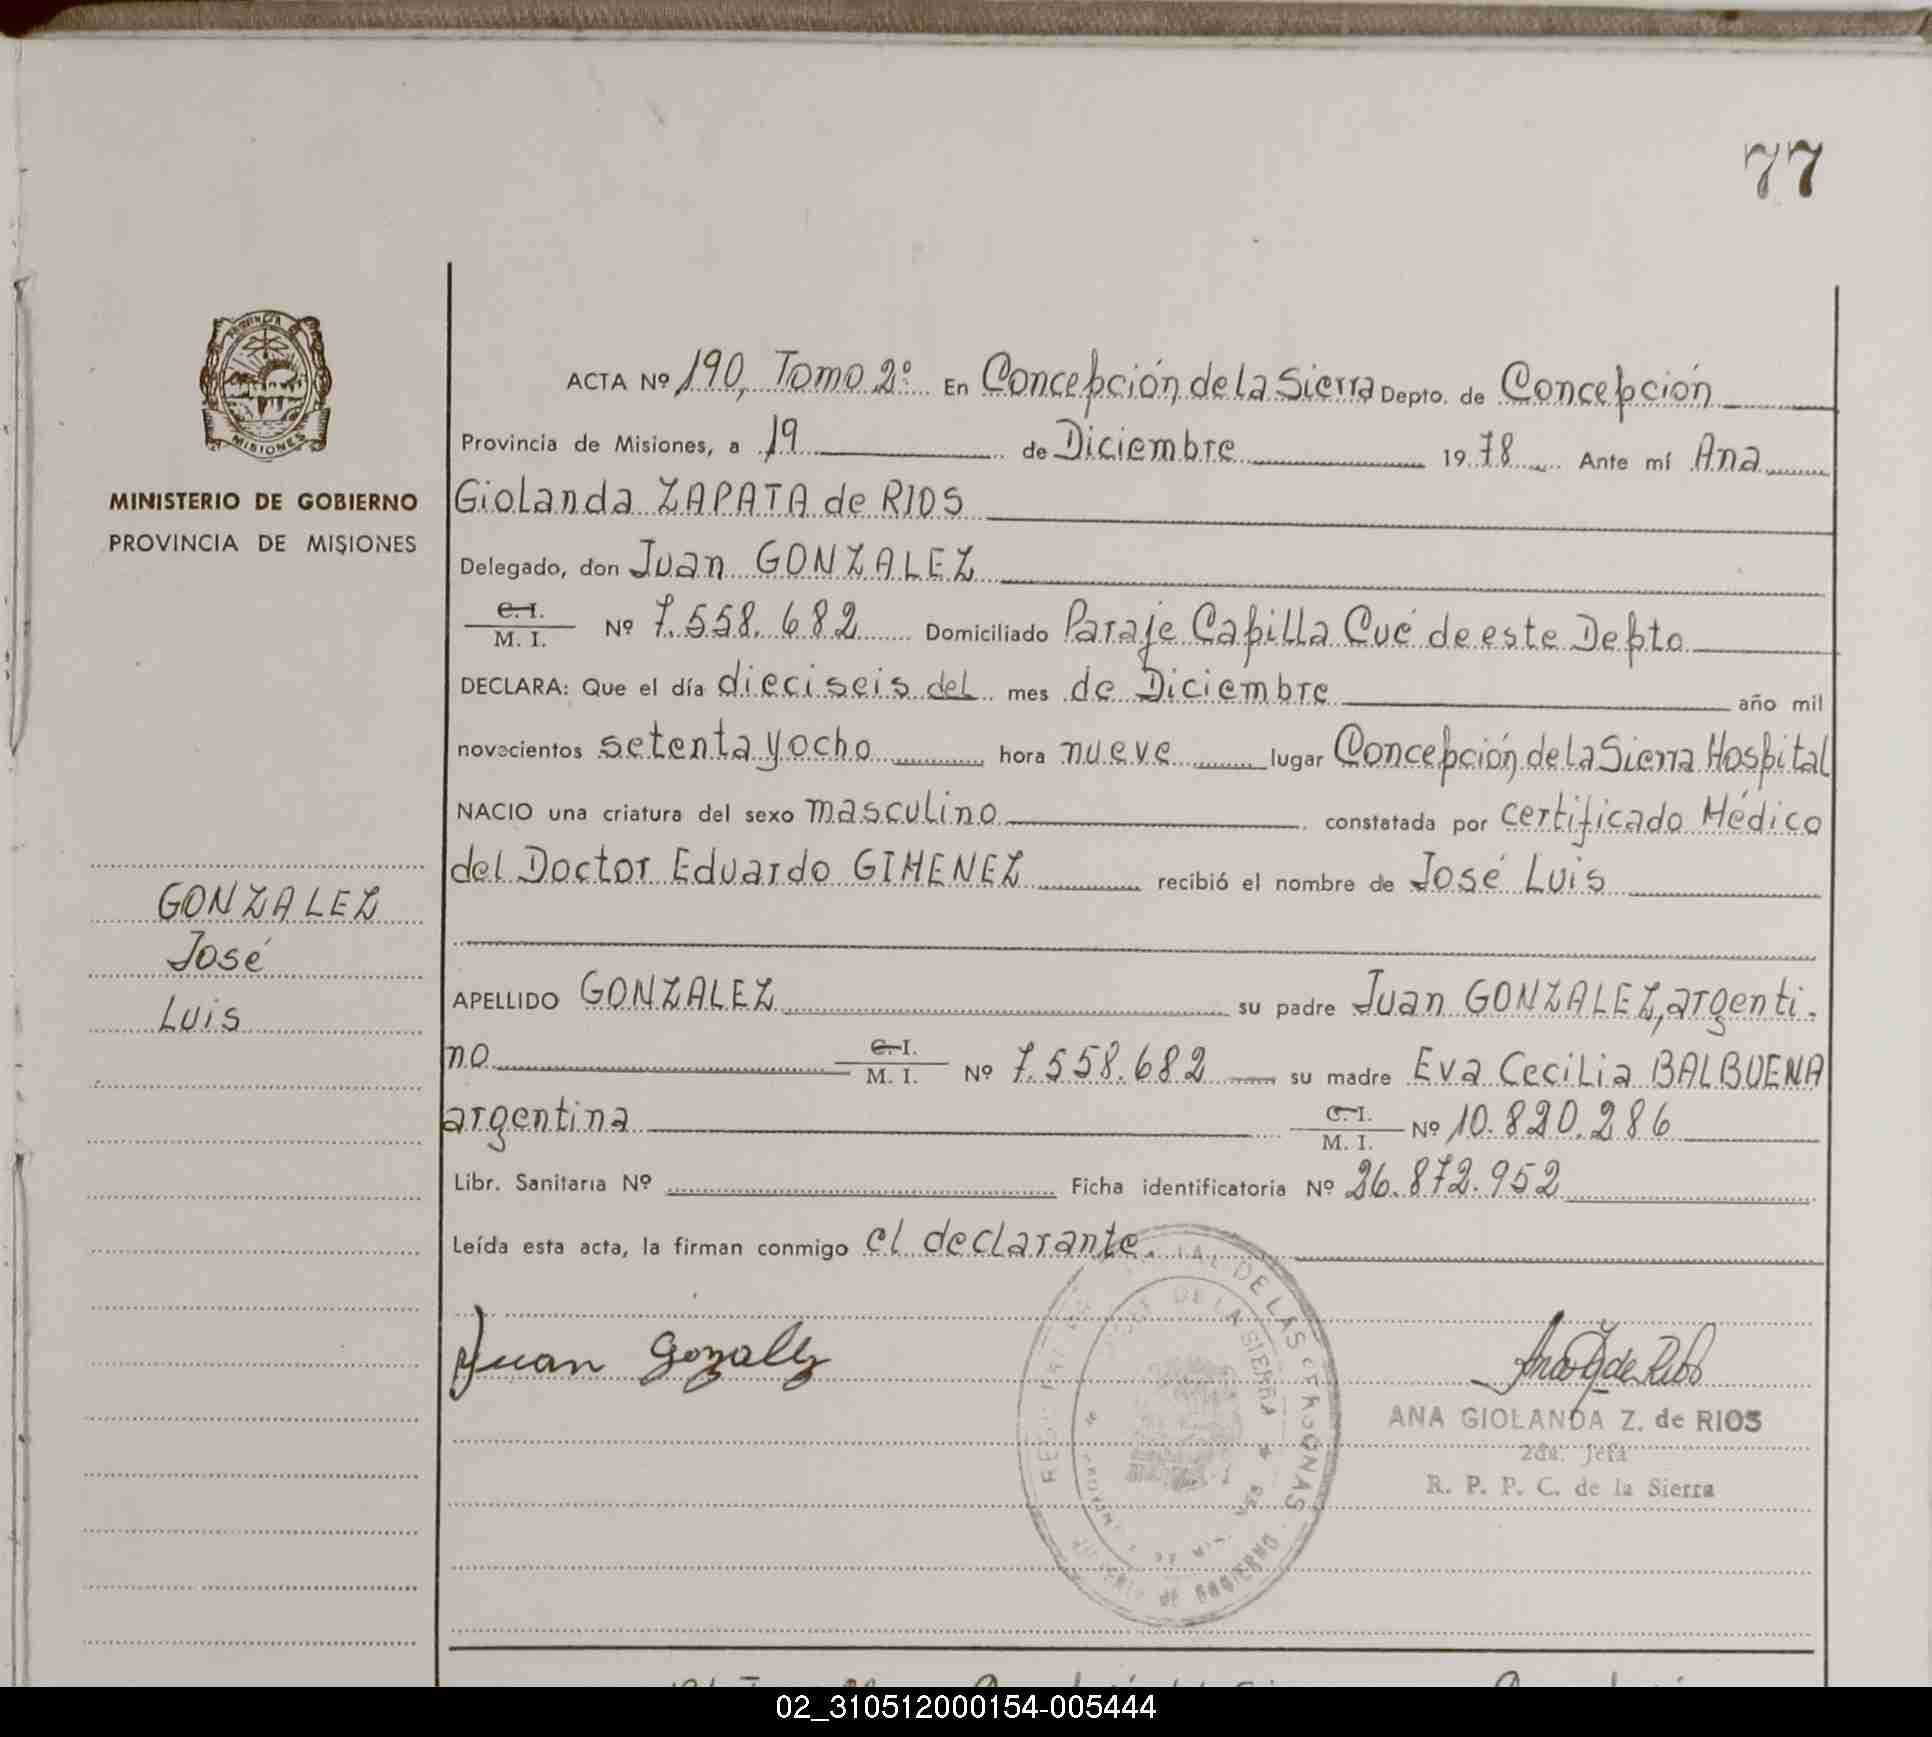 77
PROVINCIA
MISIONES
MINISTERIO DE GOBIERNO
PROVINCIA DE MISIONES
GONZALEZ
José
Luis
ACTA Nº 190, Tomo 2º En Concepción de la Sierra Depto. de Concepción
Provincia de Misiones, a 19 de Diciembre 1978 Ante mí Ana
Giolanda ZAPATA de RIOS
Delegado, don Juan GONZALEZ
C.I.
M. I. Nº 7.558.682 Domiciliado Paraje Capilla Cué de este Depto
DECLARA: Que el día dieciseis del mes de Diciembre año mil
novecientos setenta y ocho hora nueve lugar Concepción de la Sierra Hospital
NACIO una criatura del sexo masculino constatada por certificado Médico
del Doctor Eduardo GIMENEZ recibió el nombre de José Luis
APELLIDO GONZALEZ su padre Juan GONZALEZ, argenti-
no C.I. M. I. Nº 7.558.682 su madre Eva Cecilia BALBUENA
argentina C.I. M. I. Nº 10.820.286
Libr. Sanitaria Nº Ficha identificatoria Nº 26.872.952
Leída esta acta, la firman conmigo el declarante.
Juan Gonzalez
Ana G Z de Rios
DE LAS PERSONAS
DE LA SIERRA
DE GOBIERNO
ANA GIOLANDA Z. de RIOS
2da. Jefa
R. P. P. C. de la Sierra
02_310512000154-005444